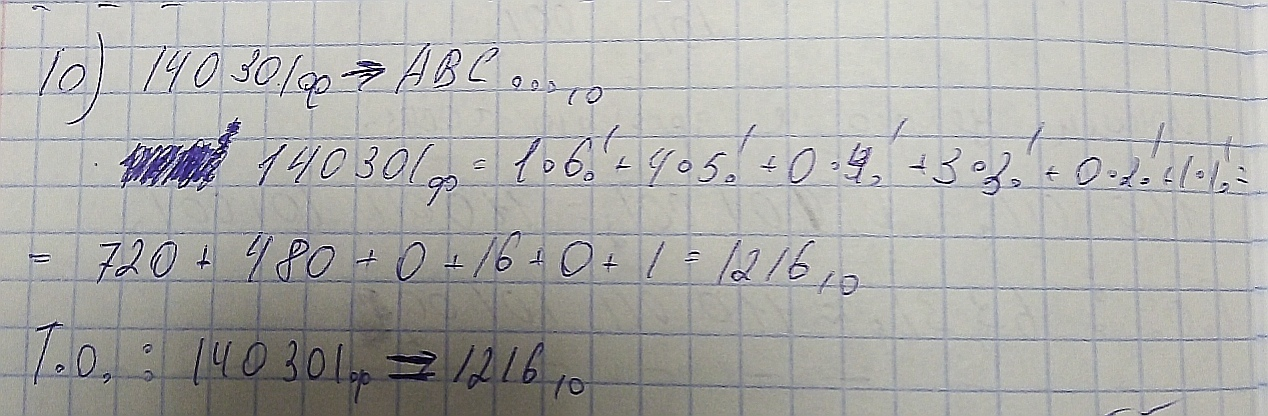 10) 140301ф → ABC...,10
140301ф = 1∘6! + 4∘5! + 0·4! + 3∘3! + 0·2! + 1·1! =
= 720 + 480 + 0 + 16 + 0 + 1 = 1216,10
Т.О. : 140301ф = 1216,10